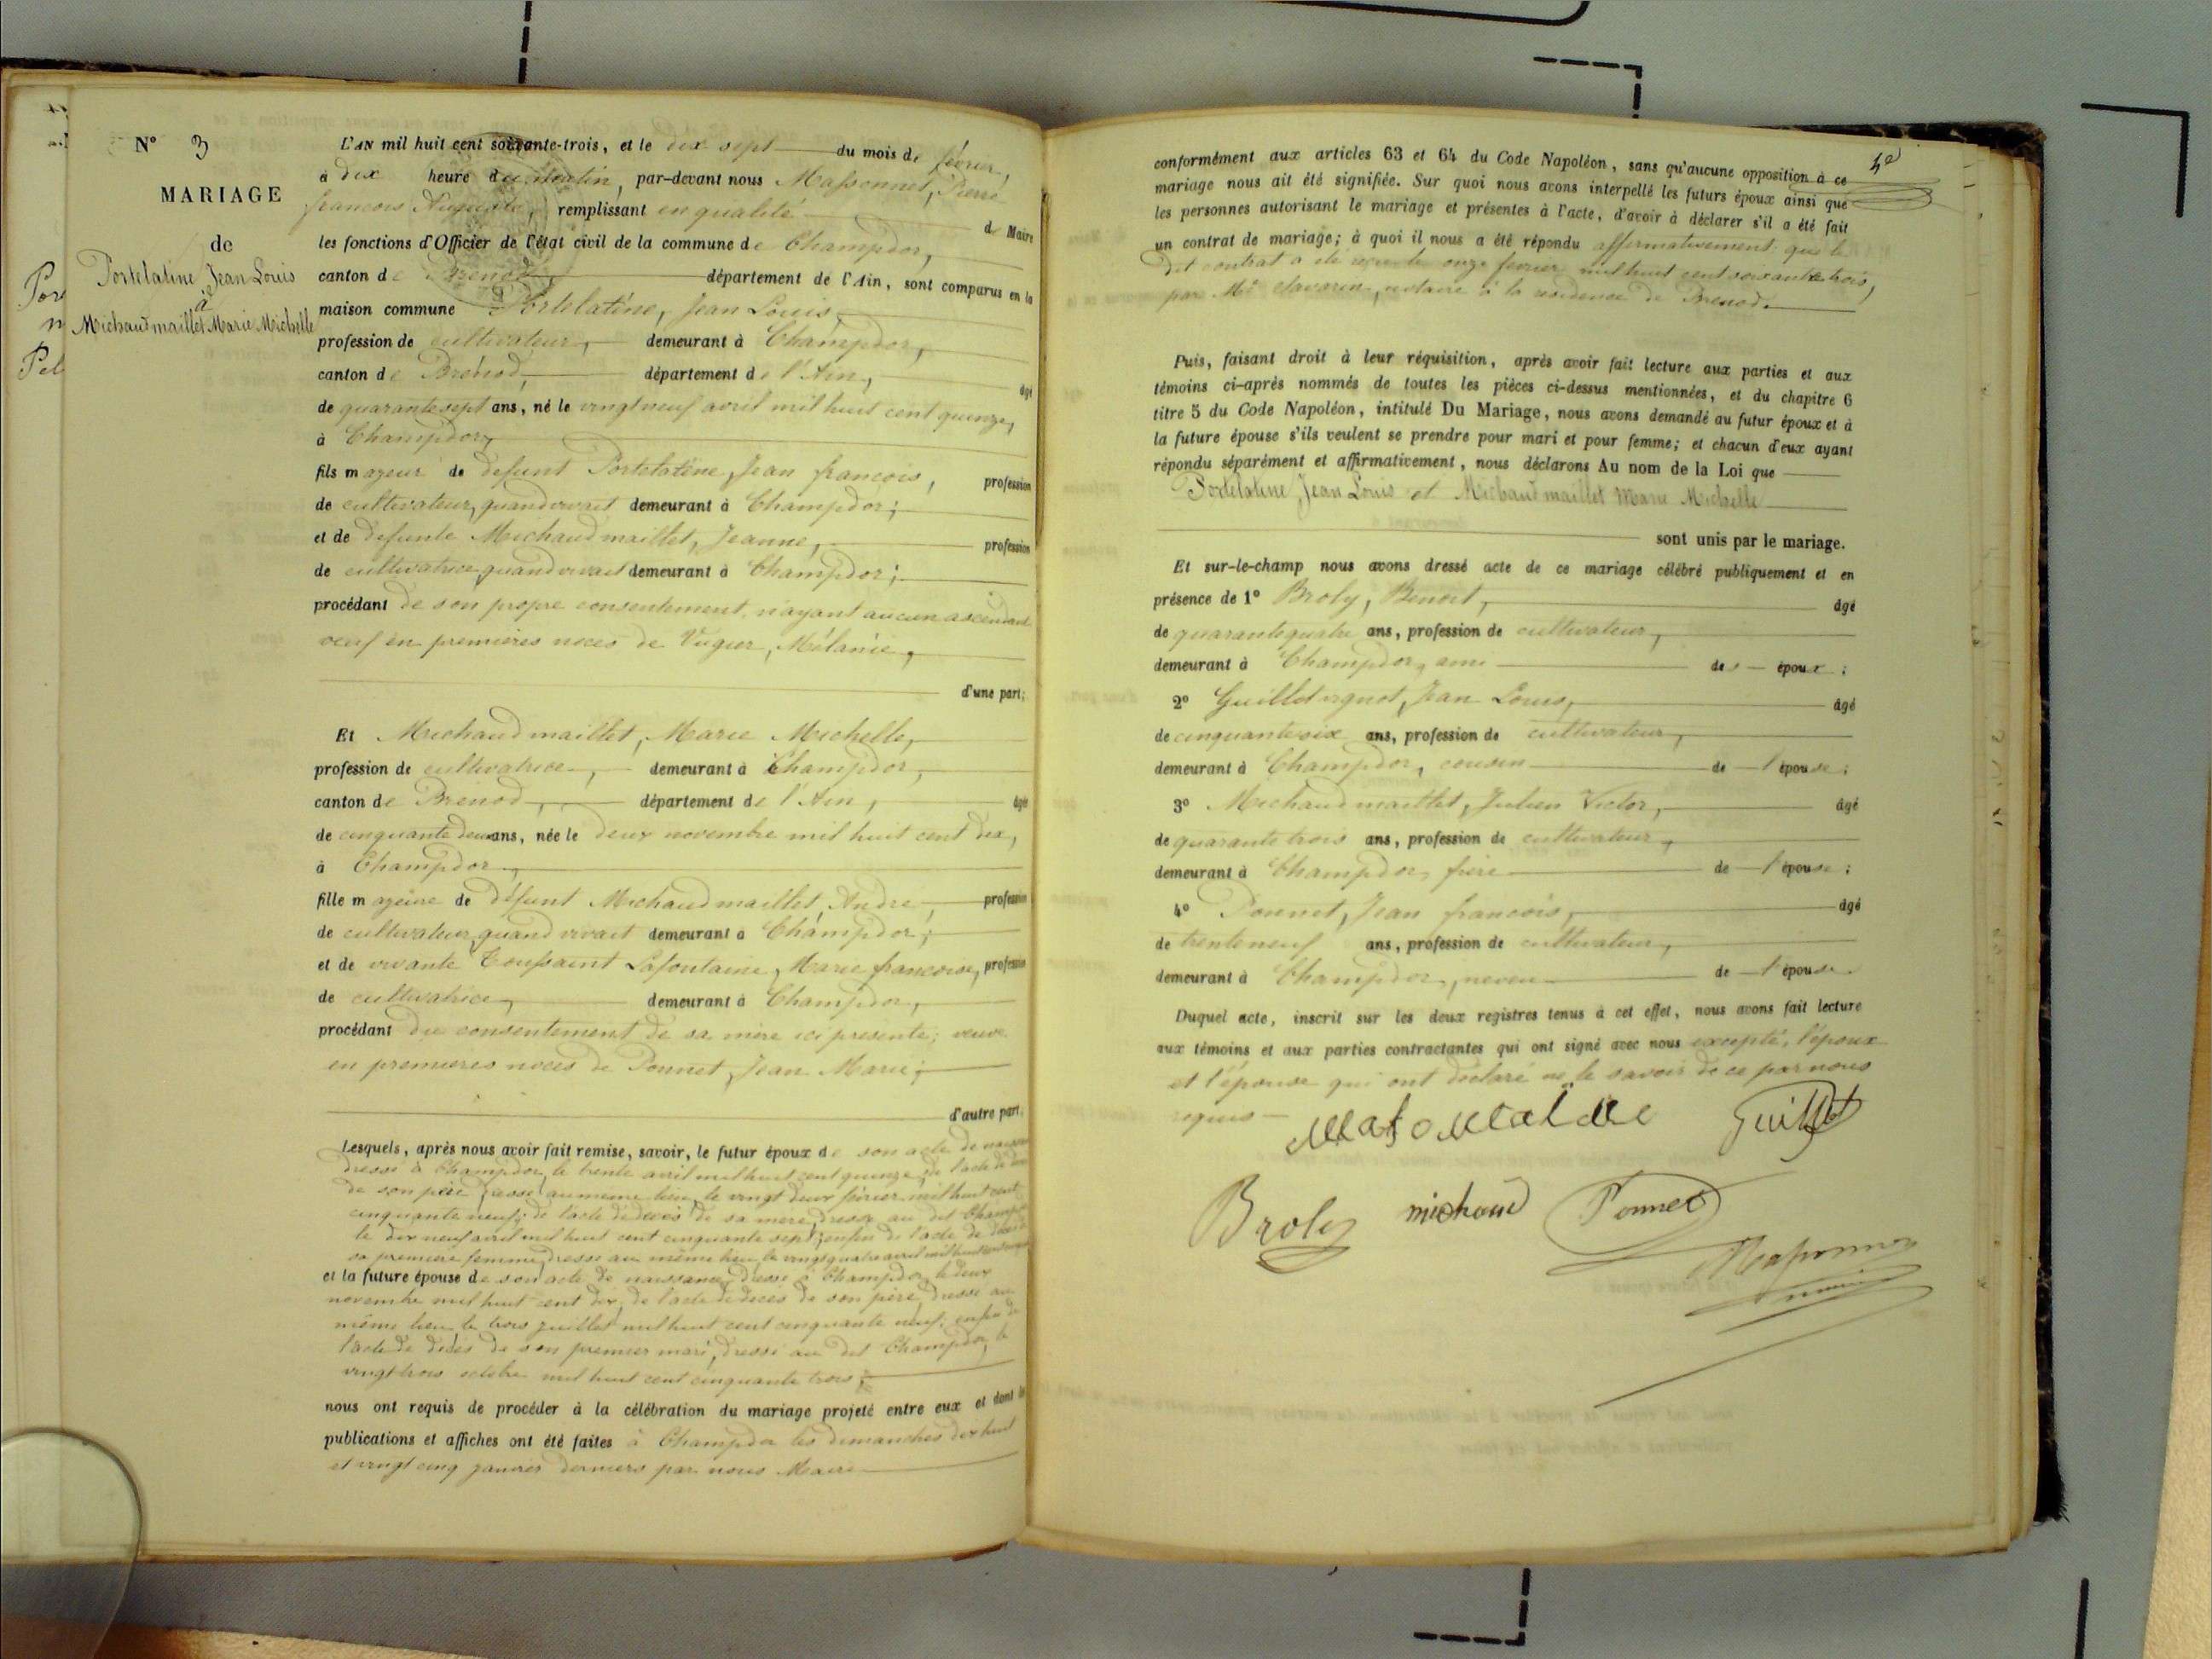 N° 3
MARIAGE
de
Portelatine Jean Louis
à
Michaud maillet Marie Michelle
Por
Pel
L'AN mil huit cent soixante-trois, et le dix sept du mois de février,
à dix heure du matin, par-devant nous Massonnet, Pierre
francois Auguste, remplissant en qualité de Maire
les fonctions d'Officier de l'état civil de la commune de Champdor,
canton de Brenod, département de l'Ain, sont comparus en la
maison commune Portelatine, Jean Louis,
profession de cultivateur, demeurant à Champdor,
canton de Brénod, département de l'Ain, âgé
de quarante sept ans, né le vingt neuf avril mil huit cent quinze,
à Champdor,
fils majeur de défunt Portelatine, Jean francois, profession
de cultivateur, quand vivait demeurant à Champdor;
et de defunte Michaud maillet, Jeanne, profession
de cultivatrice quand vivait demeurant à Champdor;
procédant de son propre consentement, n'ayant aucun ascendant
veuf en premières noces de Vugier, Mélanie,
d'une part;
Et Michaud maillet, Marie Michelle,
profession de cultivatrice, demeurant à Champdor,
canton de Brénod, département de l'Ain, âgée
de cinquante deux ans, née le deux novembre mil huit cent dix,
à Champdor,
fille majeure de défunt Michaud maillet, André, profession
de cultivateur, quand vivait demeurant à Champdor;
et de vivante Toussaint Lafontaine, Marie francoise, profession
de cultivatrice, demeurant à Champdor,
procédant du consentement de sa mère ici présente; veuve
en premieres noces de Ponnet, Jean Marie;
d'autre part.
Lesquels, après nous avoir fait remise, savoir, le futur époux de son acte de
dressé à Champdor, le trente avril mil huit cent quinze; de l'acte de
de son père, dressé au même lieu, le vingt deux février mil huit cent
cinquante neuf; de l'acte de décès de sa mère, dressé au dit
le dix neuf avril mil huit cent cinquante sept; enfin de l'acte de
sa premiere femme, dressé au même lieu, le vingt quatre avril mil huit cent
et la future épouse de son acte de naissance, dressé à Champdor, le deux
novembre mil huit cent dix; de l'acte de décès de son père, dressé au
même lieu, le trois juillet mil huit cent cinquante neuf; enfin de
l'acte de décès de son premier mari, dressé au dit Champdor, le
vingt trois octobre mil huit cent cinquante trois;
nous ont requis de procéder à la célébration du mariage projeté entre eux et dont les
publications et affiches ont été faites à Champdor les dimanches dix huit
et vingt cinq janvier derniers par nous Maire
conformément aux articles 63 et 64 du Code Napoléon, sans qu'aucune opposition à ce
mariage nous ait été signifiée. Sur quoi nous avons interpellé les futurs époux ainsi que
les personnes autorisant le mariage et présentes à l'acte, d'avoir à déclarer s'il a été fait
un contrat de mariage; à quoi il nous a été répondu affirmativement que le
dit contrat a été reçu le onze février mil huit cent soixante trois,
par Me Savarin, notaire à la residence de Brenod.
Puis, faisant droit à leur réquisition, après avoir fait lecture aux parties et aux
témoins ci-après nommés de toutes les pièces ci-dessus mentionnées, et du chapitre 6
titre 5 du Code Napoléon, intitulé Du Mariage, nous avons demandé au futur époux et à
la future épouse s'ils veulent se prendre pour mari et pour femme; et chacun d'eux ayant
répondu séparément et affirmativement, nous déclarons Au nom de la Loi que
Portelatine, Jean Louis et Michaud maillet Marie Michelle
sont unis par le mariage.
Et sur-le-champ nous avons dressé acte de ce mariage célébré publiquement et en
présence de 1° Broly, Benoit, âgé
de quarante quatre ans, profession de cultivateur,
demeurant à Champdor, ami des époux;
2° Guillot vignot, Jean Louis, âgé
de cinquante six ans, profession de cultivateur,
demeurant à Champdor, cousin de l'épouse;
3° Michaud maillet, Julien Victor, âgé
de quarante trois ans, profession de cultivateur,
demeurant à Champdor, frère de l'épouse;
4° Ponnet, Jean francois, âgé
de trente neuf ans, profession de cultivateur,
demeurant à Champdor, neveu de l'épouse
Duquel acte, inscrit sur les deux registres tenus à cet effet, nous avons fait lecture
aux témoins et aux parties contractantes qui ont signé avec nous excepté, l'époux
et l'épouse qui ont déclaré ne le savoir de ce par nous
requis
Guillot
Broly michaud Ponnet
Massonnet
maire